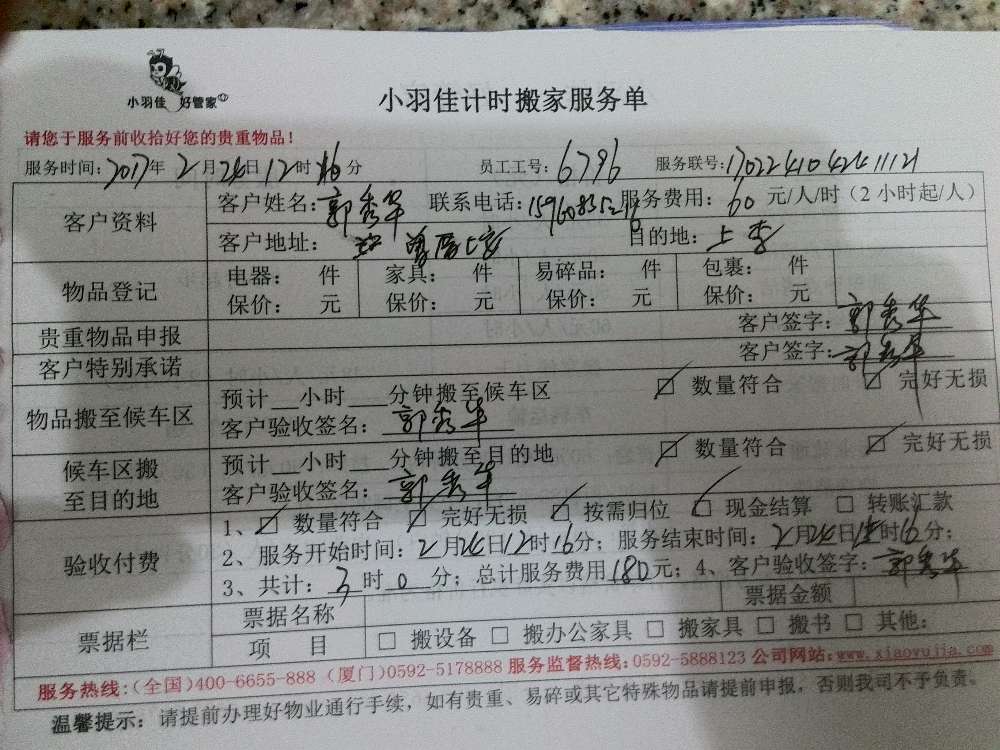 小羽佳 好管家
小羽佳计时搬家服务单
请您于服务前收拾好您的贵重物品！
服务时间：2017年2月24日12时16分 员工工号：6796 服务联号：1702241042411121
客户资料 客户姓名：郭秀华 联系电话： 服务费用：60元/人/时（2小时起/人）
客户地址： 目的地：上李
物品登记 电器： 件 家具： 件 易碎品： 件 包裹： 件
保价： 元 保价： 元 保价： 元 保价： 元
贵重物品申报 客户签字：郭秀华
客户特别承诺 客户签字：郭秀华
物品搬至候车区 预计__小时___分钟搬至候车区 ☑ 数量符合 ☑ 完好无损
客户验收签名：郭秀华
候车区搬至目的地 预计__小时___分钟搬至目的地 ☑ 数量符合 ☑ 完好无损
客户验收签名：郭秀华
验收付费 1、☑ 数量符合 ☑ 完好无损 ☑ 按需归位 ☑ 现金结算 □ 转账汇款
2、服务开始时间：2月24日12时16分；服务结束时间：2月24日15时16分；
3、共计：3时0分；总计服务费用180元；4、客户验收签字：郭秀华
票据栏 票据名称 票据金额
项 目 □ 搬设备 □ 搬办公家具 □ 搬家具 □ 搬书 □ 其他：
服务热线：(全国)400-6655-888 (厦门)0592-5178888 服务监督热线：0592-5888123 公司网站：www.xiaoyujia.com
温馨提示：请提前办理好物业通行手续，如有贵重、易碎或其它特殊物品请提前申报，否则我司不予负责。